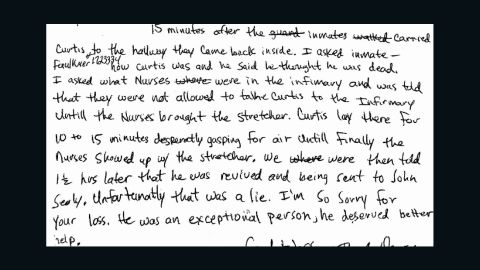 15 minutes after the guard inmates walked carried
Curtis to the hallway they came back inside. I asked inmate -
Faulkner #1725334 how curtis was and he said he thought he was dead.
I asked what Nurses where were in the infirmary and was told
that they were not allowed to take Curtis to the Infirmary
Untill the Nurses brought the stretcher. Curtis lay there for
10 to 15 minutes desperetly gasping for air Untill Finally the
Nurses showed up w/ the stretcher. We where were then told
1½ hrs later that he was revived and being sent to John
Sealy. Unfortunatly that was a lie. I'm so sorry for
your loss. He was an exceptional person, he deserved better
help.